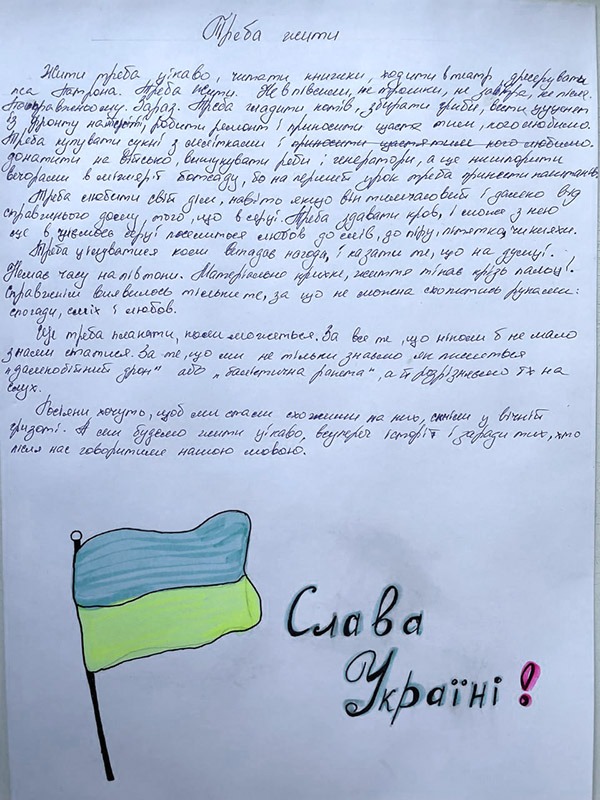 Треба жити
Жити треба цікаво, читати книжки, ходити в театр, дресирувати
пса Патрона. Треба жити. Не впівсили, не трошки, не завтра, не після.
По-справжньому. Зараз. Треба гладити котів, збирати гриби, везти цуценя
із фронту, робити ремонт і приносити щастя тим, кого любимо.
Треба купувати сукні з лелітками і приносити щастя тим, кого любимо.
донатити на військо, вишукувати реби і генератори, а ще нишпорити
вечорами в мізері, бо на перший урок треба принести каштани.
Треба любити світ, дім, навіть якщо він тимчасовий і далеко від
справжнього дому, того, що в серці. Треба здавати кров, і може з нею
ще в чиємусь серці поселиться любов до слів, до піру, п'ятки, чи княжи.
Треба цілуватися коли випадає нагода, і казати те, що на думці.
Немає часу на півтони. Матеріальне крихке, життя тікає крізь пальці.
Справжнім виявилось тільки те, за що не можна схопитись руками:
спогади, сміх і любов.
Ще треба плакати, коли можеться. За все те, що ніколи б не мало
з нами статися. За те, що ми не тільки знаємо як пишеться
"далекобійний дрон" або "балістична ракета", а й розрізняємо їх на
слух.
Росіяни хочуть, щоб ми стали схожими на них, скніли у вічній
гризоті. А ми будемо жити цікаво, всупереч історії і заради тих, хто
після нас говоритиме нашою мовою.
Слава
Україні!